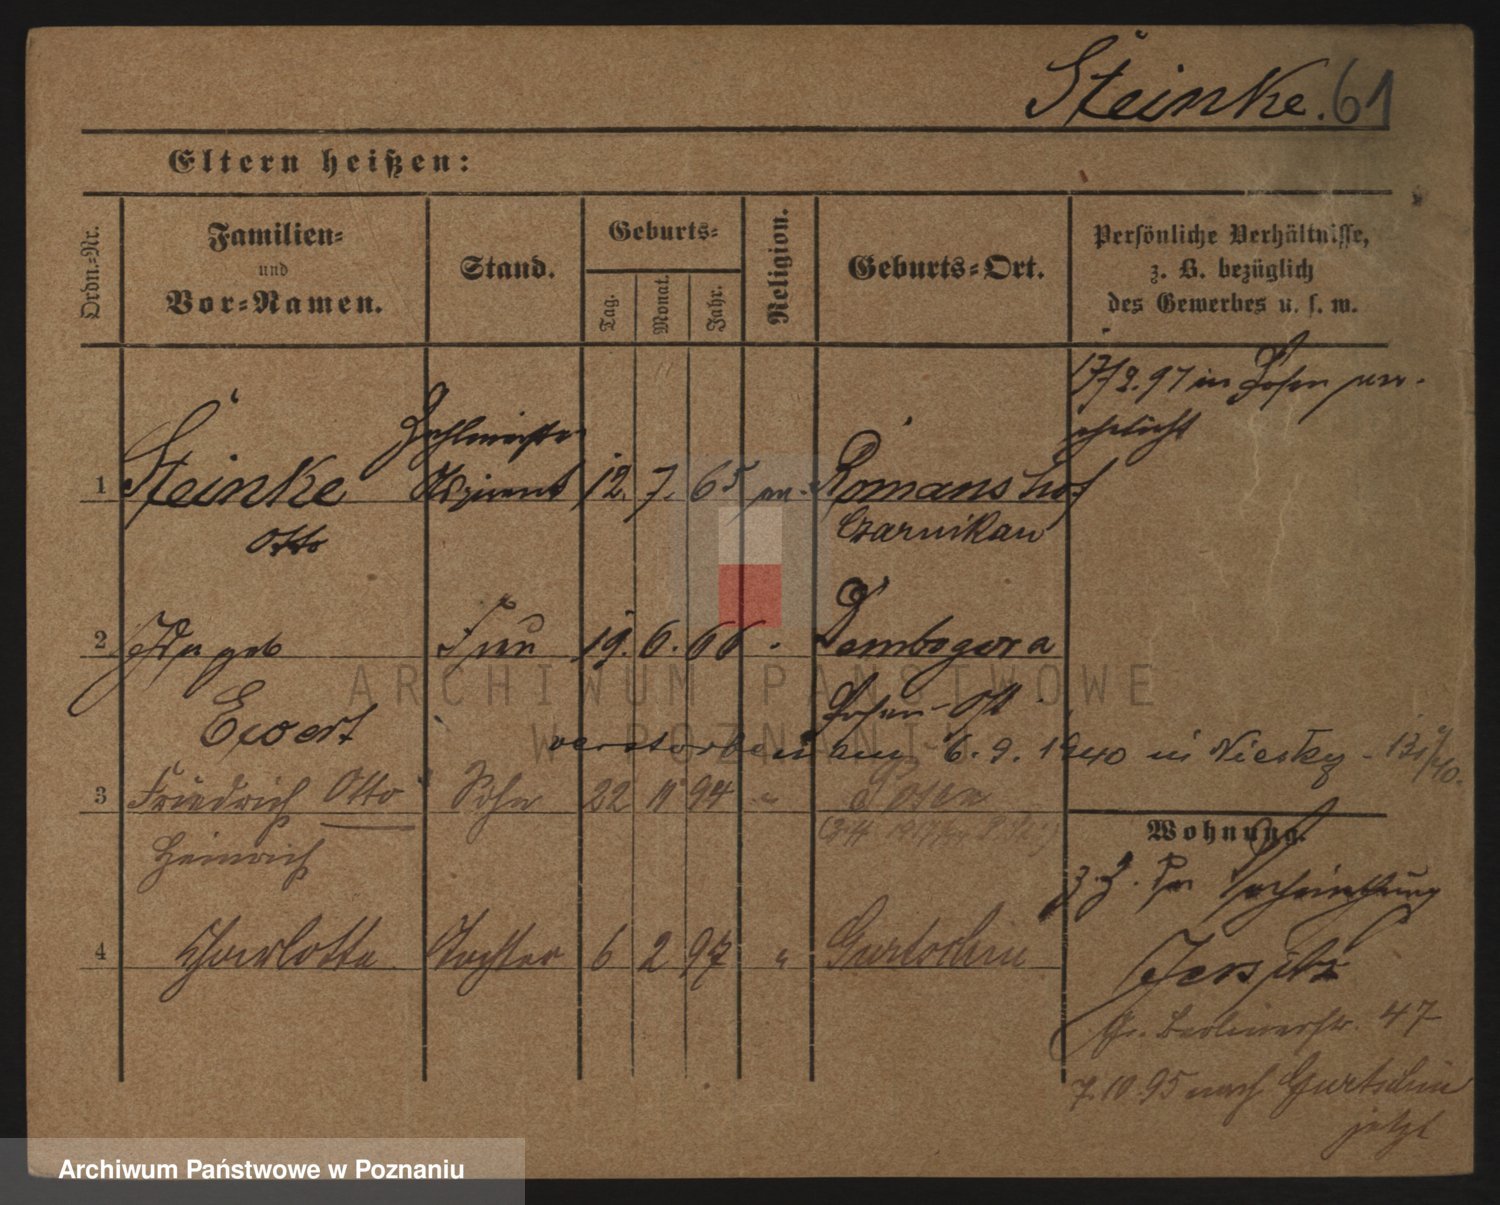 Steinke. 61
Eltern heißen:
Ordn.-Nr.
Familien-
und
Vor-Namen.
Stand.
Geburts-
Tag.
Monat.
Jahr.
Religion.
Geburts-Ort.
Persönliche Verhältnisse,
z. B. bezüglich
des Gewerbes u. s. w.
in Posen ver-
ehelicht
Zahlmeister
1 Steinke Aspirant 12. 7. 65 ev. Romanshof
Otto
Czarnikau
2 Ida geb Frau 19. 6. 66 " Dembogora
Ewert
Posen-Ost
verstorben am 6. 9. 1940 in Niesky
3 Friedrich Otto Sohn 22 11 94 " Posen
Heinrich
4 Charlotte Tochter 6 2 97 " Gurtschin
Wohnung.
z. Z. der Verheirathung
Jersitz
Gr. Berlinerstr. 47
7.10.95 nach Gurtschin
jetzt
ARCHIWUM PAŃSTWOWE
W POZNANIU
Archiwum Państwowe w Poznaniu